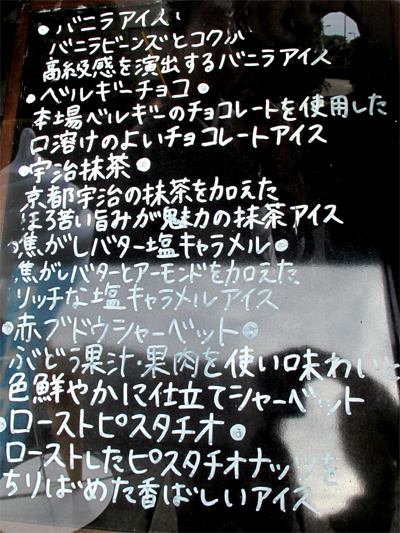 ● バニラアイス
バニラビーンズとコクが
高級感を演出するバニラアイス
● ベルギーチョコ ●
本場ベルギーのチョコレートを使用した
口溶けのよいチョコレートアイス
● 宇治抹茶 ●
京都宇治の抹茶を加えた
ほろ苦い旨みが魅力の抹茶アイス
● 焦がしバター塩キャラメル ●
焦がしバターとアーモンドを加えた
リッチな塩キャラメルアイス
● 赤ブドウシャーベット ●
ぶどう果汁・果肉を使い味わいと
色鮮やかに仕立てシャーベット
● ローストピスタチオ ●
ローストしたピスタチオナッツを
ちりばめた香ばしいアイス